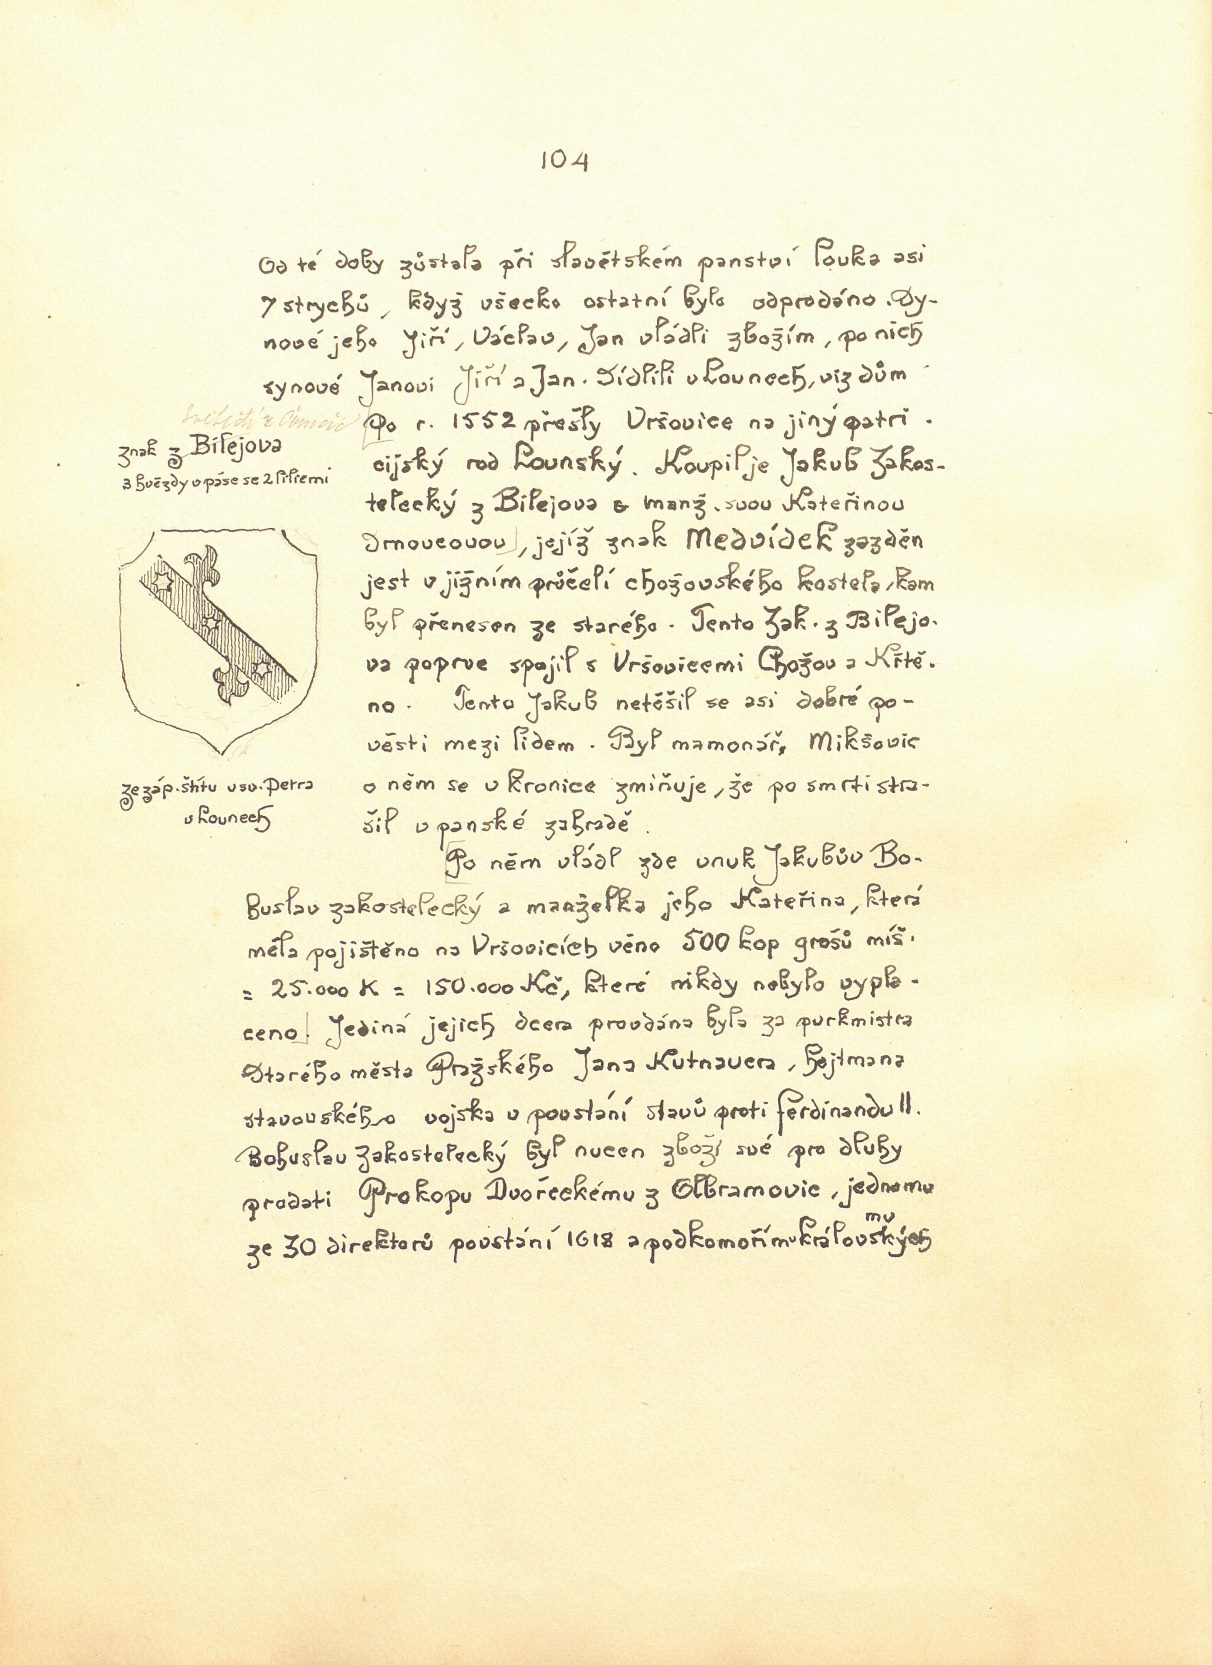 104
Od té doby zůstala při slavětském panství louka asi
7 strychů, když všecko ostatní bylo odprodáno. Sy-
nové jeho Jiří, Václav, Jan vládli zbožím, po nich
synové Janovi Jiří a Jan. Sídlili v Lounech, viz dům
Po r. 1552 přešly Vršovice na jiný patri-
cijský rod Lounský. Koupil je Jakub Zakos-
telecký z Bílejova & manž. svou Kateřinou
Drnovcovou, jejíž znak Medvídek zazděn
jest v jižním průčelí chožovského kostela, kam
byl přenesen ze starého. Tento Zak. z Bílejo-
va poprve spojil s Vršovicemi Chožov a Křtě-
no. Tento Jakub netěšil se asi dobré po-
věsti mezi lidem. Byl mamonář, Mikšovic
o něm se v kronice zmiňuje, že po smrti stra-
šil v panské zahradě.
znak z Bílejova
3 hvězdy v páse se 2 liliemi
ze záp. štítu u sv. Petra
v Lounech
Po něm vládl zde vnuk Jakubův Bo-
huslav zakostelecký a manželka jeho Kateřina, která
měla pojištěno na Vršovicích věno 500 kop grošů míš.
= 25.000 K = 150.000 Kč, které nikdy nebylo vypla-
ceno. Jediná jejich dcera provdána byla za purkmistra
Starého města Pražského Jana Kutnauera, hejtmana
stavovského vojska v povstání stavů proti Ferdinandu II.
Bohuslav Zakostelecký byl nucen zboží své pro dluhy
prodati Prokopu Dvořeckému z Olbramovic, jednomu
ze 30 direktorů povstání 1618 a podkomořímu královských
mu